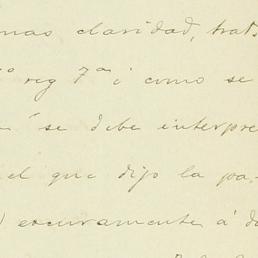 mas claridad, trat
reg 7ª i como se
se debe interpre
el que dijo la pa-
escuramente á d